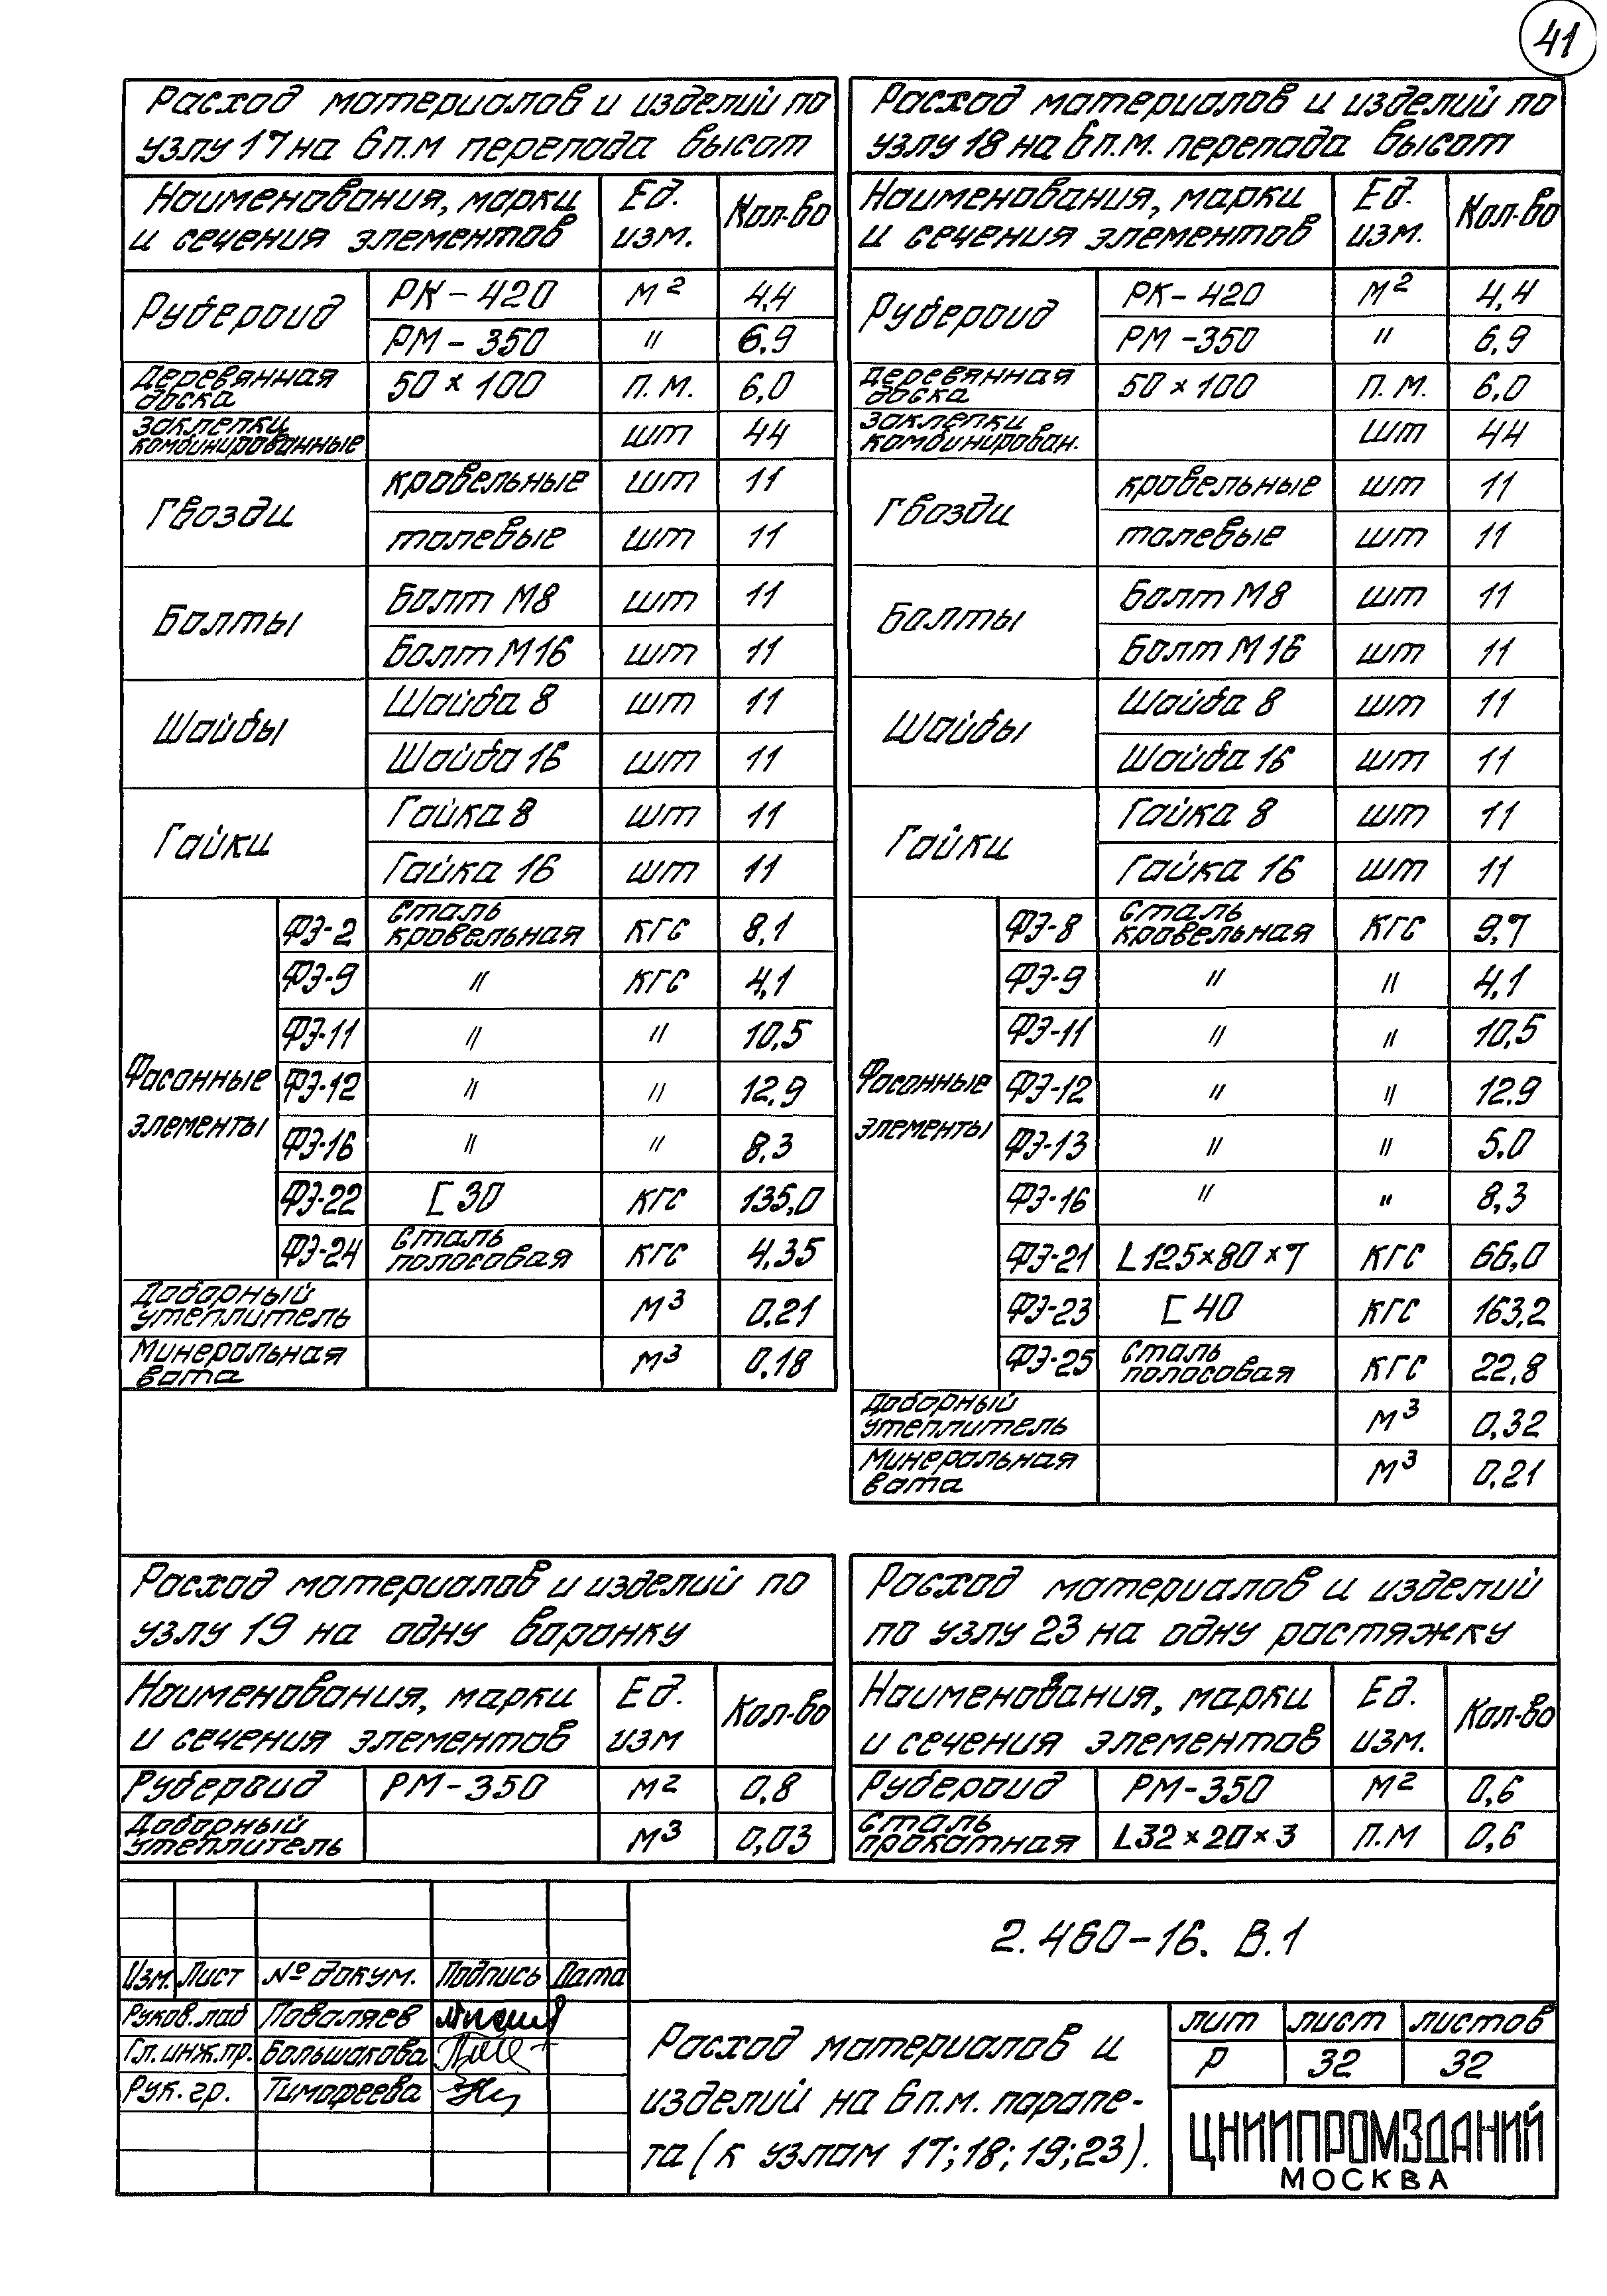 41
Расход материалов и изделий по
узлу 17 на 6 п.м перепада высот
Наименования, марки
и сечения элементов
Ед.
изм.
Кол-во
Рубероид
РК-420 м² 4,4
РМ-350 " 6,9
Деревянная
доска
50×100 п.м. 6,0
Заклепки
комбинированные
шт 44
Гвозди
кровельные шт 11
толевые шт 11
Болты
Болт М8 шт 11
Болт М16 шт 11
Шайбы
Шайба 8 шт 11
Шайба 16 шт 11
Гайки
Гайка 8 шт 11
Гайка 16 шт 11
Фасонные
элементы
ФЭ-2 Сталь
кровельная кгс 8,1
ФЭ-9 " кгс 4,1
ФЭ-11 " " 10,5
ФЭ-12 " " 12,9
ФЭ-16 " " 8,3
ФЭ-22 [ 30 кгс 135,0
ФЭ-24 Сталь
полосовая кгс 4,35
Доборный
утеплитель
м³ 0,21
Минеральная
вата
м³ 0,18
Расход материалов и изделий по
узлу 18 на 6 п.м. перепада высот
Наименования, марки
и сечения элементов
Ед.
изм.
Кол-во
Рубероид
РК-420 м² 4,4
РМ-350 " 6,9
Деревянная
доска
50×100 п.м. 6,0
Заклепки
комбинирован.
шт 44
Гвозди
кровельные шт 11
толевые шт 11
Болты
Болт М8 шт 11
Болт М16 шт 11
Шайбы
Шайба 8 шт 11
Шайба 16 шт 11
Гайки
Гайка 8 шт 11
Гайка 16 шт 11
Фасонные
элементы
ФЭ-8 Сталь
кровельная кгс 9,7
ФЭ-9 " " 4,1
ФЭ-11 " " 10,5
ФЭ-12 " " 12.9
ФЭ-13 " " 5.0
ФЭ-16 " " 8,3
ФЭ-21 L125×80×7 кгс 66,0
ФЭ-23 [ 40 кгс 163,2
ФЭ-25 Сталь
полосовая кгс 22,8
Доборный
утеплитель
м³ 0,32
Минеральная
вата
м³ 0,21
Расход материалов и изделий по
узлу 19 на одну воронку
Наименования, марки
и сечения элементов
Ед.
изм
Кол-во
Рубероид РМ-350 м² 0,8
Доборный
утеплитель
м³ 0,03
Расход материалов и изделий
по узлу 23 на одну растяжку
Наименования, марки
и сечения элементов
Ед.
изм.
Кол-во
Рубероид РМ-350 м² 0,6
Сталь
прокатная
L32×20×3 п.м 0,6
2.460-16. В.1
Изм. Лист № докум. Подпись Дата
Руков.лаб Поваляев
Гл.инж.пр. Большакова
Рук.гр. Тимофеева
Расход материалов и
изделий на 6 п.м. парапе-
та (к узлам 17;18;19;23).
лит лист листов
Р 32 32
ЦНИИПРОМЗДАНИЙ
МОСКВА